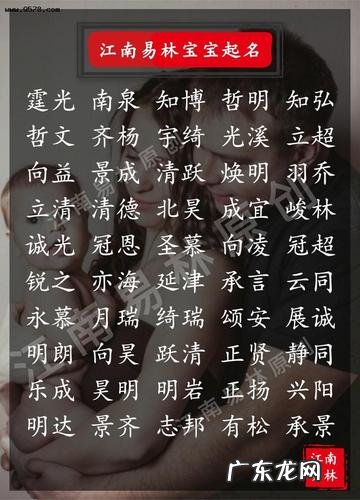 www.q578.com
江南易林宝宝起名
霆光 南泉 知博 哲明 知弘
哲文 齐杨 宇绮 光溪 立超
向益 景成 清跃 焕明 羽乔
立清 清德 北昊 成宜 峻林
诚光 冠恩 圣慕 向凌 冠超
锐之 亦海 延津 承言 云同
永慕 月瑞 绮瑞 颂安 展诚
明朗 向昊 跃清 正贤 静同
乐成 昊明 明岩 正扬 兴阳
明达 景齐 志邦 有松 承景
江南易林原创
江南易林原创
江南易林原创
江南
易林
广东龙网